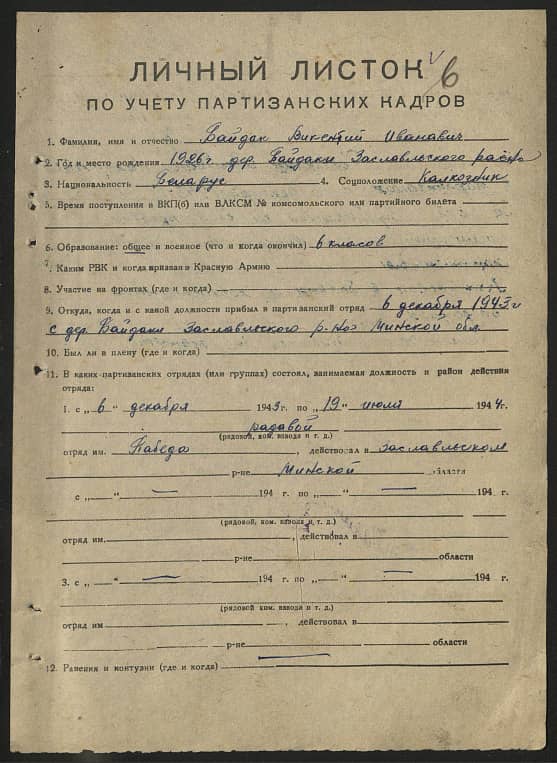 ЛИЧНЫЙ ЛИСТОК
6
ПО УЧЕТУ ПАРТИЗАНСКИХ КАДРОВ
1. Фамилия, имя и отчество Байдак Викентий Иванавич
2. Год и место рождения 1926 г дер. Байдаки Заславльского района
3. Национальность Беларус 4. Соцположение Калхозник
5. Время поступления в ВКП(б) или ВЛКСМ № комсомольского или партийного билета
6. Образование: общее и военное (что и когда окончил) 6 класов
7. Каким РВК и когда призван в Красную Армию
8. Участие на фронтах (где и когда)
9. Откуда, когда и с какой должности прибыл в партизанский отряд 6 декабря 1943 г
с дер. Байдаки Заславльского р-на Минской обл.
10. Был ли в плену (где и когда)
11. В каких партизанских отрядах (или группах) состоял, занимаемая должность и район действия
отряда:
1. с „6" декабря 1943 г. по „19" июля 1944 г.
радавой
(рядовой, ком. взвода и т. д.)
отряд им. Пабеда, действовал в заславльском
р-не Минской области
с „ " 194 г. по „ " 194 г.
(рядовой, ком. взвода и т. д.)
отряд им. , действовал в
р-не области
3. с „ " 194 г. по „ " 194 г.
(рядовой ком. взвода и т. д.)
отряд им , действовал в
р-не области
12. Ранения и контузии (где и когда)